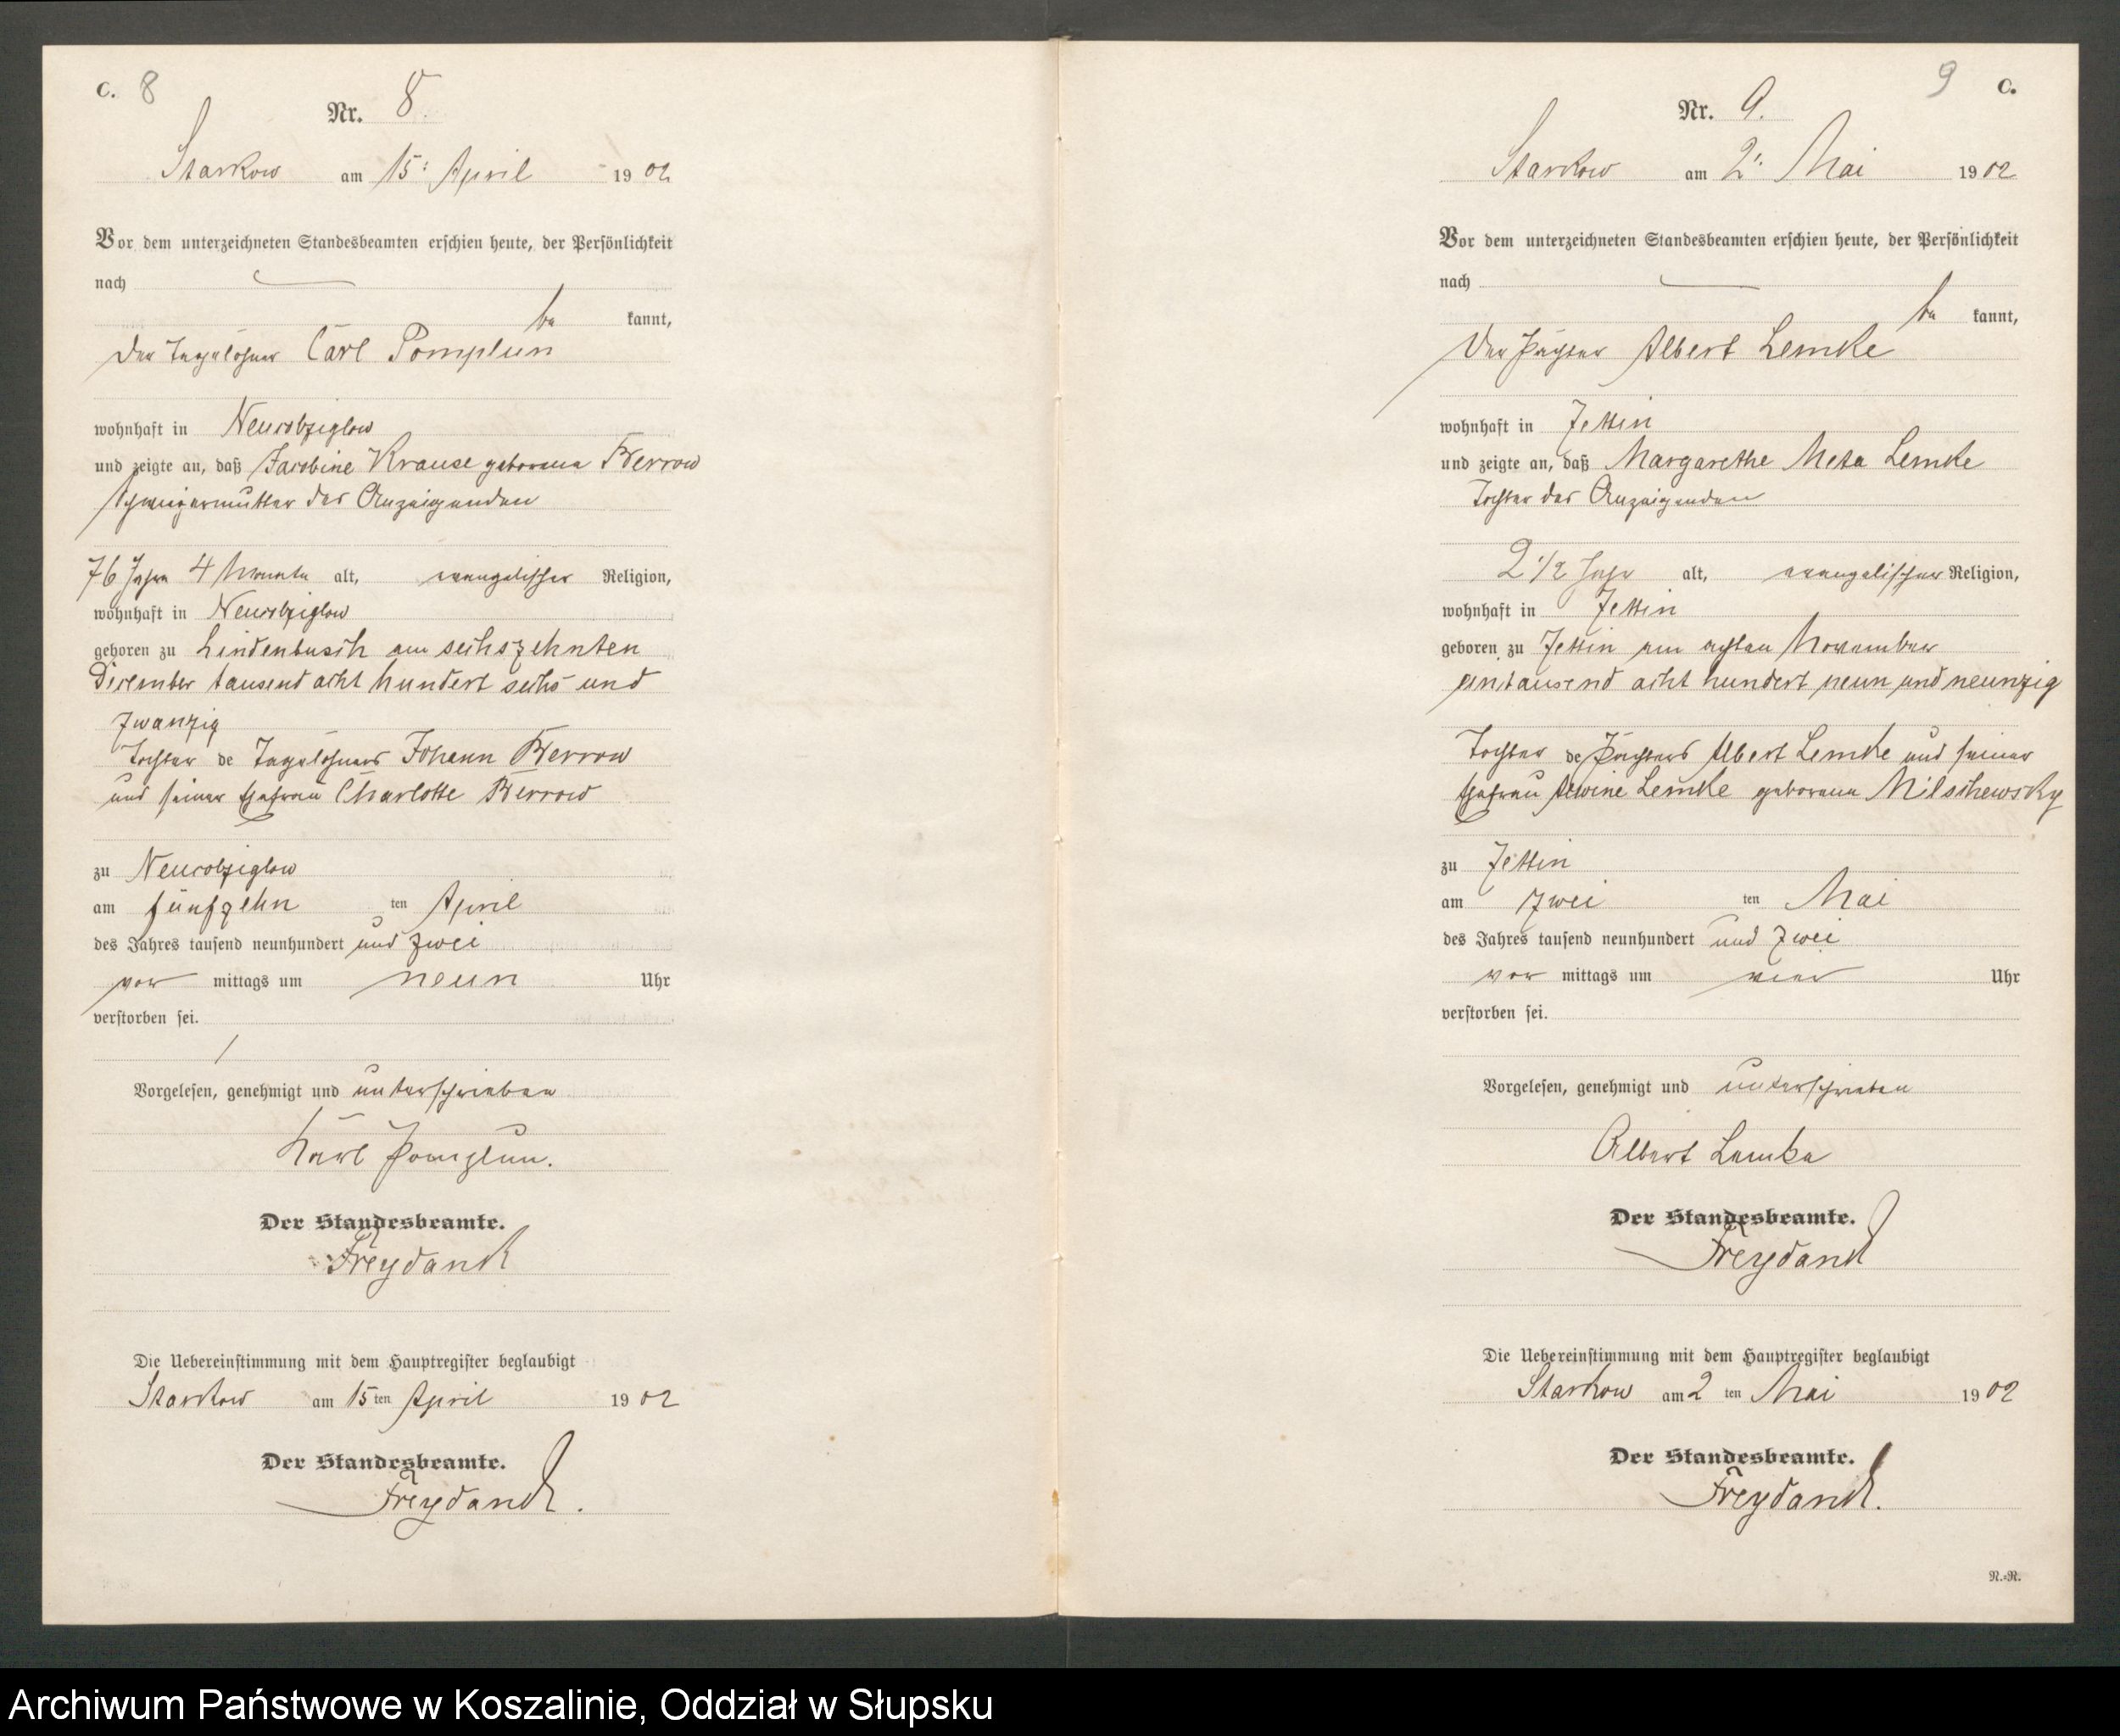 C. 8
Nr. 8.
Starkow am 15: April 1902
Vor dem unterzeichneten Standesbeamten erschien heute, der Persönlichkeit
nach
be kannt,
der Tagelöhner Carl Pomplun
wohnhaft in Neurobziglow
und zeigte an, daß Jacobine Krause geborene Berrow
Schwiegermutter des Anzeigenden
76 Jahre 4 Monate alt, evangelischer Religion,
wohnhaft in Neurobziglow
geboren zu Lindenbusch am sechszehnten
December tausend acht hundert sechs und
zwanzig
Tochter de Tagelöhners Johann Berrow
und seiner Ehefrau Charlotte Berrow
zu Neurobziglow
am fünfzehn ten April
des Jahres tausend neunhundert und zwei
vor mittags um neun Uhr
verstorben sei.
Vorgelesen, genehmigt und unterschrieben
Karl Pomplun.
Der Standesbeamte.
Freydanck
Die Uebereinstimmung mit dem Hauptregister beglaubigt
Starkow am 15 ten April 1902
Der Standesbeamte.
Freydanck.
9 C.
Nr. 9.
Starkow am 2: Mai 1902
Vor dem unterzeichneten Standesbeamten erschien heute, der Persönlichkeit
nach
be kannt,
der Pächter Albert Lemke
wohnhaft in Jettin
und zeigte an, daß Margarethe Meta Lemke
Tochter des Anzeigenden
2 1/2 Jahr alt, evangelischer Religion,
wohnhaft in Jettin
geboren zu Jettin am achten November
eintausend acht hundert neun und neunzig
Tochter de Pächters Albert Lemke und seiner
Ehefrau Alwine Lemke geborene Milschewsky
zu Jettin
am zwei ten Mai
des Jahres tausend neunhundert und zwei
vor mittags um vier Uhr
verstorben sei.
Vorgelesen, genehmigt und unterschrieben
Albert Lemke
Der Standesbeamte.
Freydanck
Die Uebereinstimmung mit dem Hauptregister beglaubigt
Starkow am 2 ten Mai 1902
Der Standesbeamte.
Freydanck.
N.=R.
Archiwum Państwowe w Koszalinie, Oddział w Słupsku